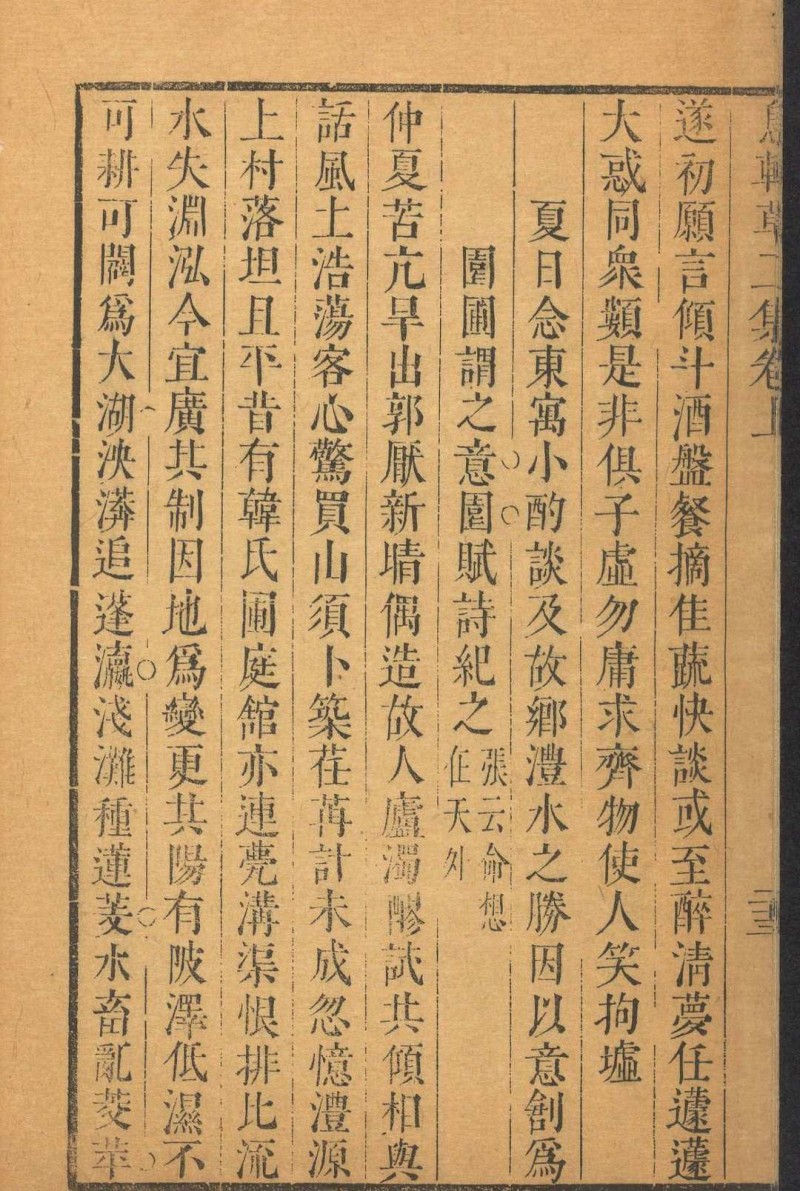 息軒草二集卷上
二三
遂初願言傾斗酒盤餐摘佳蔬快談或至醉淸夢任蘧蘧
大惑同衆類是非俱子虛勿庸求齊物使人笑拘墟
夏日念東寓小酌談及故鄉澧水之勝因以意創爲
園圃謂之意園賦詩紀之張云命想
在天外
仲夏苦亢旱出郭厭新晴偶造故人廬濁醪試共傾相與
話風土浩蕩客心驚買山須卜築荏苒計未成忽憶澧源
上村落坦且平昔有韓氏圃庭舘亦連甍溝渠恨排比流
水失淵泓今宜廣其制因地爲變更其陽有陂澤低濕不
可耕可闢爲大湖泱漭追蓬瀛淺灘種蓮芰水畜亂菱苹